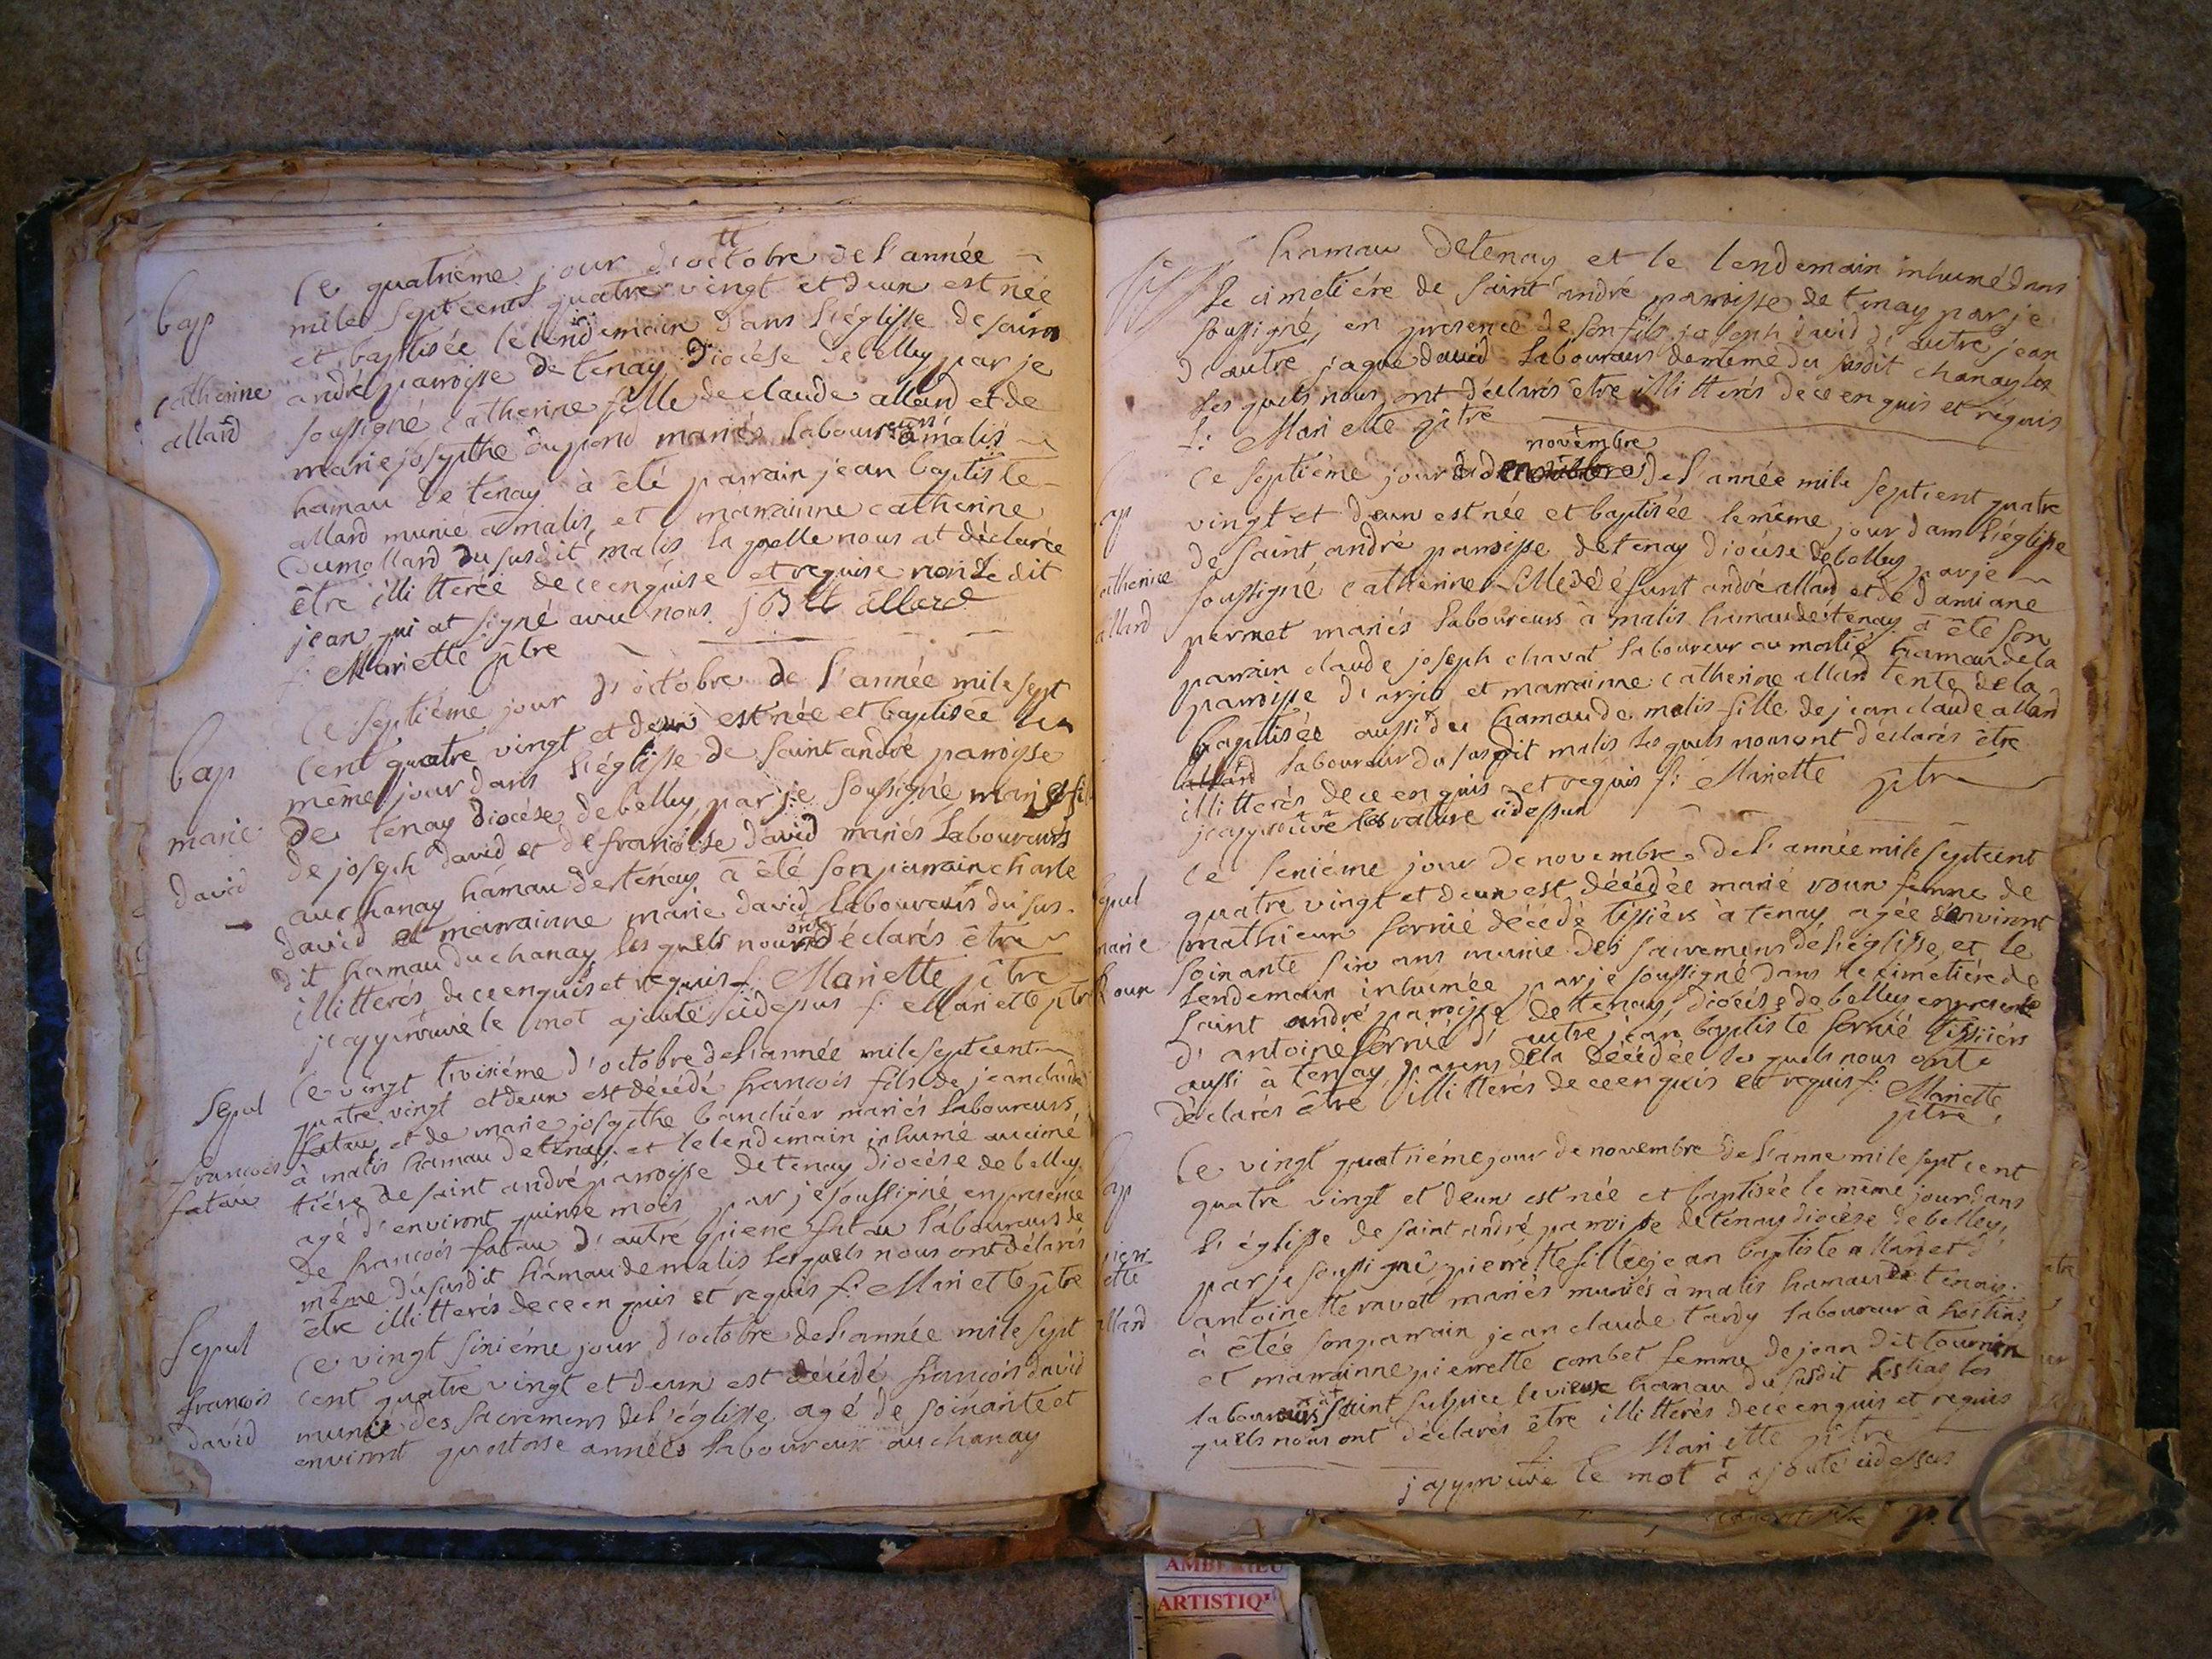 bap
catherine
allard
Ce quatriéme jour d'octtobre de l'année
mile septcent quatre vingt et deux est née
et baptisée le lendemain dans l'église de saint
andré paroisse de tenay diocése de belley par je
soussigné catherine fille de claude allard et de
marie josepthe dupond mariés laboureurs à malis
hamau de tenay à été parrain jean baptiste
allard munié a malis et marrainne catherine
dumollard du susdit malis la quelle nous at déclarée
être illitterée de ce enquise et requise non le dit
jean qui at signé avec nous J B tt allard
f: Mariette ptre
bap
marie
david
Ce septiéme jour d'octobre de l'année mile sept
cent quatre vingt et deux est née et baptisée le
même jour dans l'église de saint andré paroisse
de tenay diocése de belley par je soussigné marie fi
de joseph david et de françoise david mariés laboureurs
au chanay hamau de tenay à été son parrain charle
david et marrainne marie david laboureurs du sus
dit hamau du chanay les quels nous ont déclarés être
illitterés de ce enquis et requis f. Mariette ptre
j'approuve le mot ajouté cidessus f: Mariette ptre
sepul
francois
fatau
Ce vingt troisiéme d'octobre de l'année mile septcent
quatre vingt et deux est décédé francois fils de jean claude
fatau et de marie josepthe banchier mariés laboureurs
à malis hamau de tenay et le lendemain inhumé au cimé
tiére de saint andré paroisse de tenay diocése de belley
agé d'environt quinse mois par je soussigné en presence
de francois fatau d'autre pierre fatau laboureurs de
même du susdit hamau de malis les quels nous ont délarés
être illitterés de ce en quis et requis f: Mariette ptre
sepul
francois
david
Ce vingt siniéme jour d'octobre de l'année mile sept
cent quatre vingt et deux est décédé françois david
munie des sacremens de l'église agé de soinante et
environt quatorse années laboureur au chanay
hamau de tenay et le lendemain inhumé dans
le cimetiére de saint andré paroisse de tenay par je
soussigné en presence de son fils joseph david d'autre jean
d'autre jaque david laboureurs de même du susdit chanay les
les quels nous ont déclarés être illitterés de ce enquis et réquis
f: Mariette ptre
novembre
Ce septiéme jour de l'année mile septcent quatre
ap
catherine
allard
vingt et deux est née et baptisée le même jour dans l'église
de saint andré paroisse de tenay diocése de belley par je
soussigné catherine fille de défunt andré allard et de damiane
pernet mariés laboureurs à malis hamau de tenay à été son
parrain claude joseph chavat laboureur au hamau de la
paroisse d'argis et marrainne catherine allard tente de la
baptisée aussi du hamau de malis fille de jean claude allard
allard laboureur du susdit malis les quels nous ont déclarés être
illitterés de ce enquis et requis f: Mariette ptre
j'approuve la rature cidessus
Ce seniéme jour de novembre de l'année mile septcent
sepul
marie
roux
quatre vingt et deux est décédée marie roux femme de
mathieux fornié décédé tissiers à tenay agée d'environt
soinante sin ans munie des sacremens de l'église et le
lendemain inhumée par je soussigné dans le cimetiére de
saint andré paroisse de tenay diocése de belley en presence
d'antoine fornié d'autre jean baptiste fornié tissiérs
aussi à tenay parens de la décédée les quels nous ont
déclarés être illitterés de ce enquis et requis f: Mariette
ptre
Ce vingt quatriéme jour de novembre de l'anne mile septcent
ap
pierr
ette
allard
quatre vingt et deux est née et baptisée le même jour dans
l'église de saint andré paroisse de tenay diocése de belley
par je soussigné pierrette fille jean baptiste allard et d'
antoinette ravat mariés muniés à malis hamau de tenais
à étéé son parrain jean claude tardy laboureur à hostias
et marrainne pierrette combet femme de jean dit tournier
laboureurs à saint sulpice le vieux hamau du susdit hostias les
quels nous ont déclarés être illitterés de ce enquis et requis
f: Mariette ptre
j'approuve le mot à ajouté cidessus
ARTISTIQ